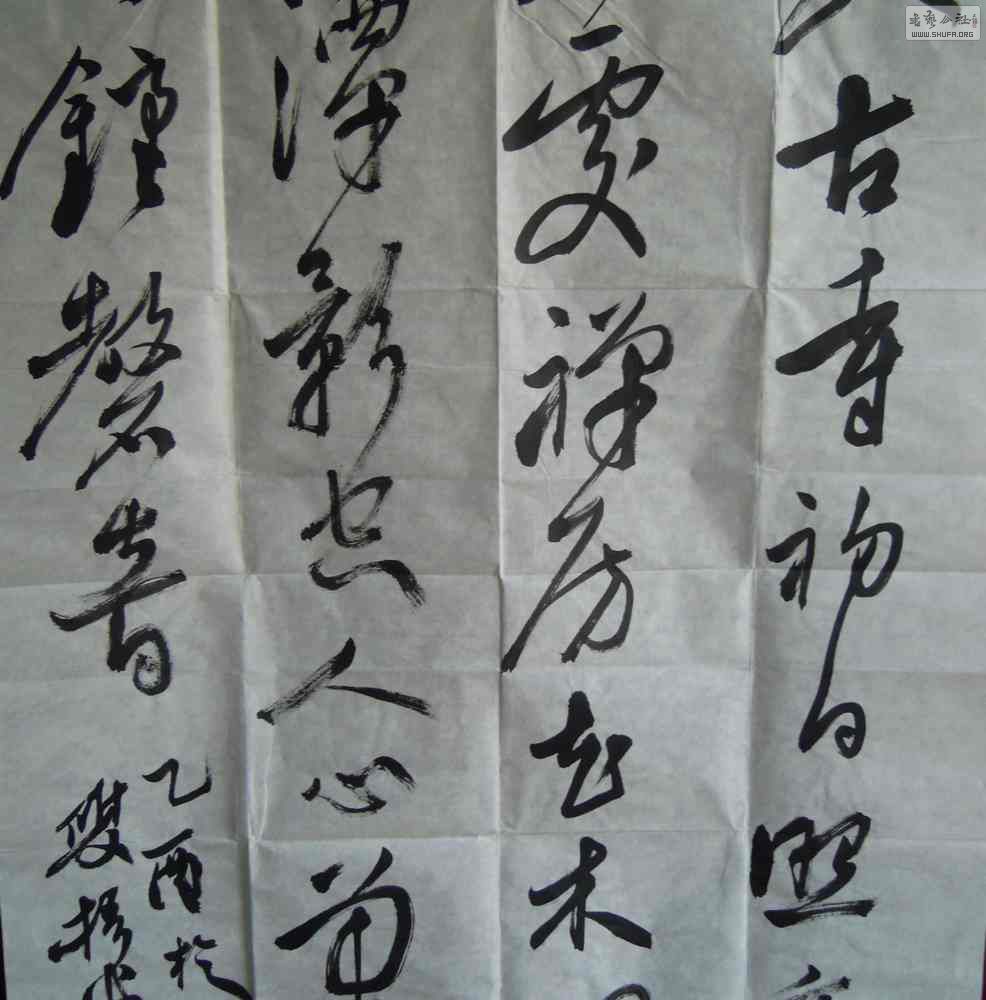 古寺初日照
處禪房花木
潭影空人心萬
鐘磬音
乙酉於
雙
書藝公社
WWW.SHUFA.ORG